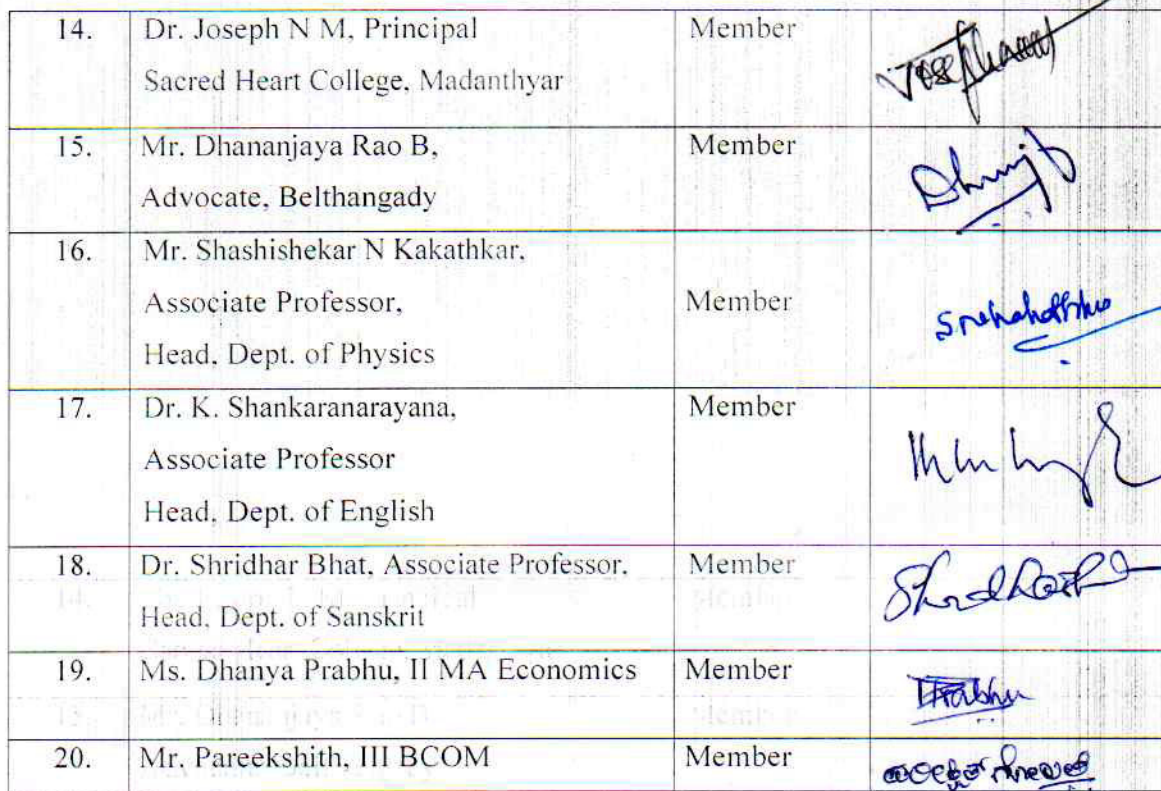 14. Dr. Joseph N M, Principal Member
Sacred Heart College, Madanthyar
15. Mr. Dhananjaya Rao B, Member
Advocate, Belthangady
16. Mr. Shashishekar N Kakathkar,
Associate Professor, Member
Head, Dept. of Physics
17. Dr. K. Shankaranarayana, Member
Associate Professor
Head, Dept. of English
18. Dr. Shridhar Bhat, Associate Professor, Member
Head, Dept. of Sanskrit
19. Ms. Dhanya Prabhu, II MA Economics Member
20. Mr. Pareekshith, III BCOM Member